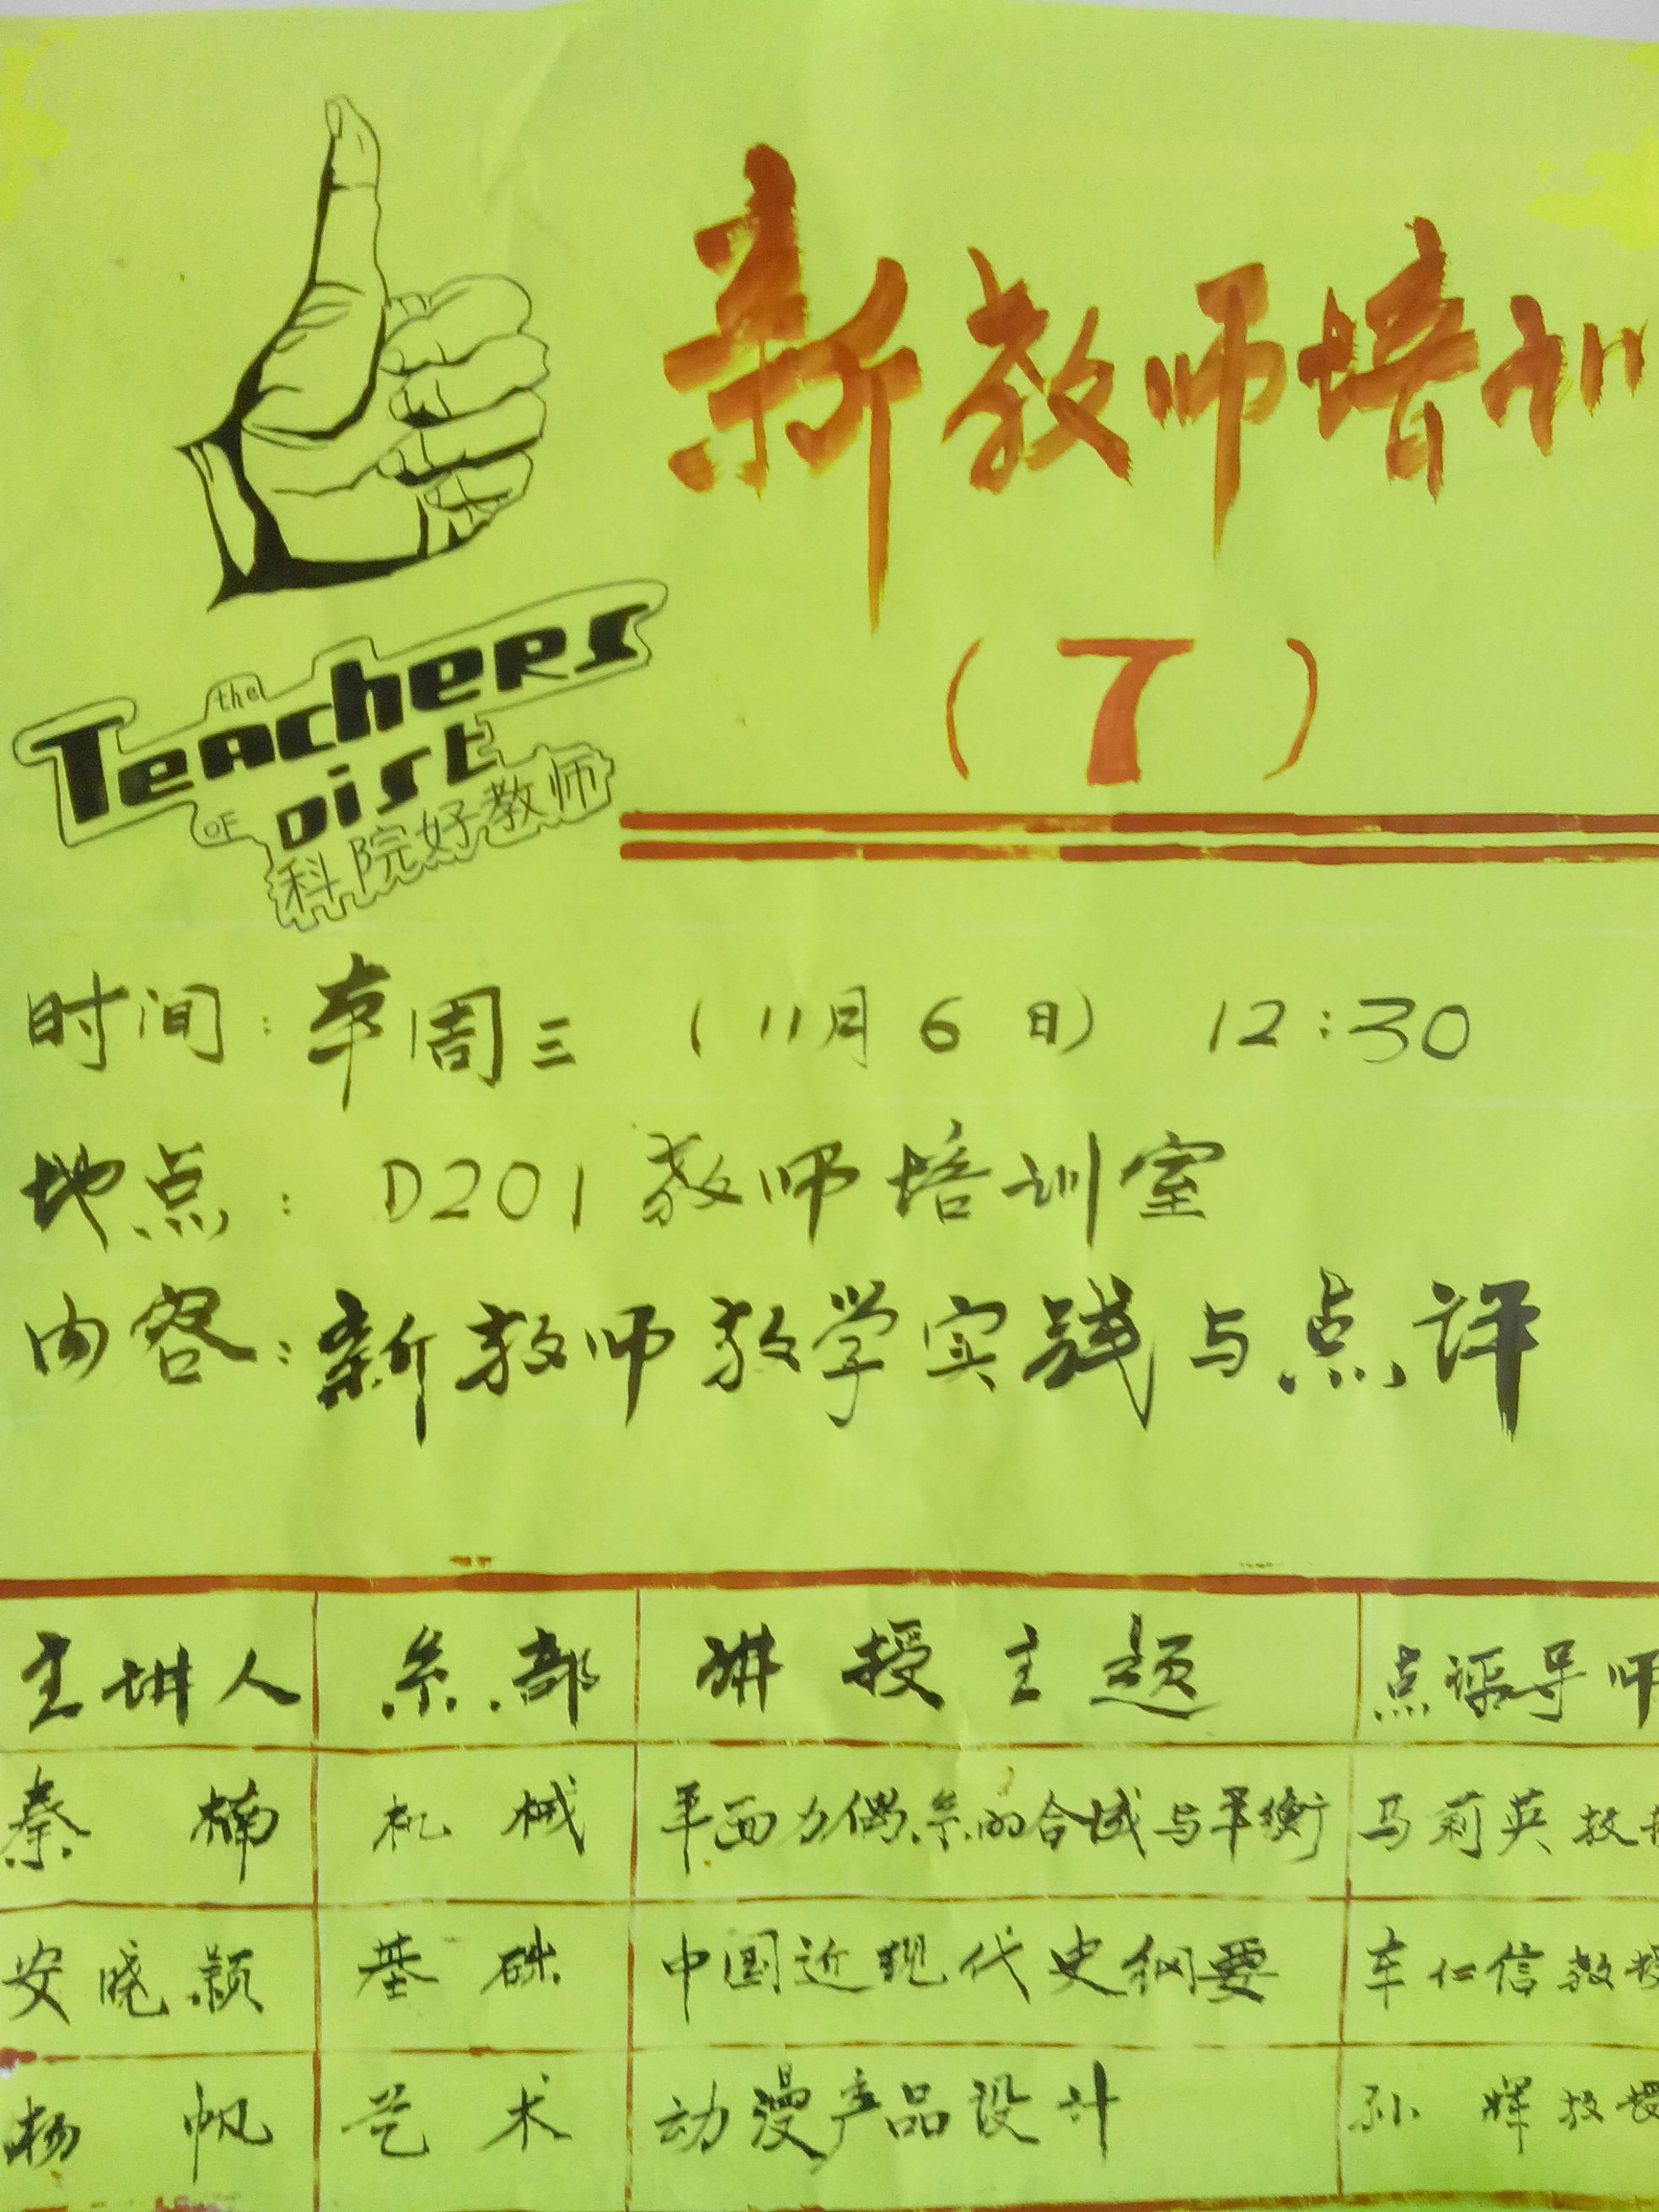 新教师培训
(7)
the
Teachers
OF DISt
科院好教师
时间:本周三 (11月6日) 12:30
地点: D201教师培训室
内容:新教师教学实践与点评
主讲人 系部 讲授主题 点评导师
秦楠 机械 平面力偶系的合成与平衡 马莉英教授
安晓颖 基础 中国近现代史纲要 车仁信教授
杨帆 艺术 动漫产品设计 孙辉教授